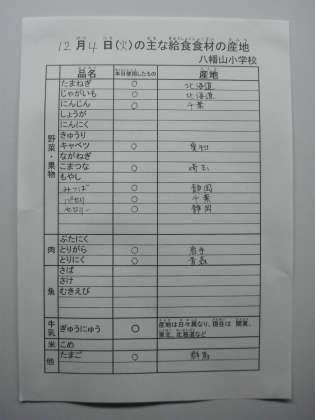 12月4日(火)の主な給食食材の産地
八幡山小学校
品名 本日使用したもの 産地
野菜・果物
たまねぎ ○ 北海道
じゃがいも ○ 北海道
にんじん ○ 千葉
しょうが
にんにく
きゅうり
キャベツ ○ 愛知
ながねぎ
こまつな ○ 埼玉
もやし
みつば ○ 静岡
パセリ ○ 千葉
セロリー ○ 静岡
肉
ぶたにく
とりがら ○ 岩手
とりにく ○ 青森
魚
さば
さけ
むきえび
牛乳 ぎゅうにゅう ○ 産地は日々異なり、現在は 関東、
東北、北海道など
米 こめ
他 たまご ○ 群馬